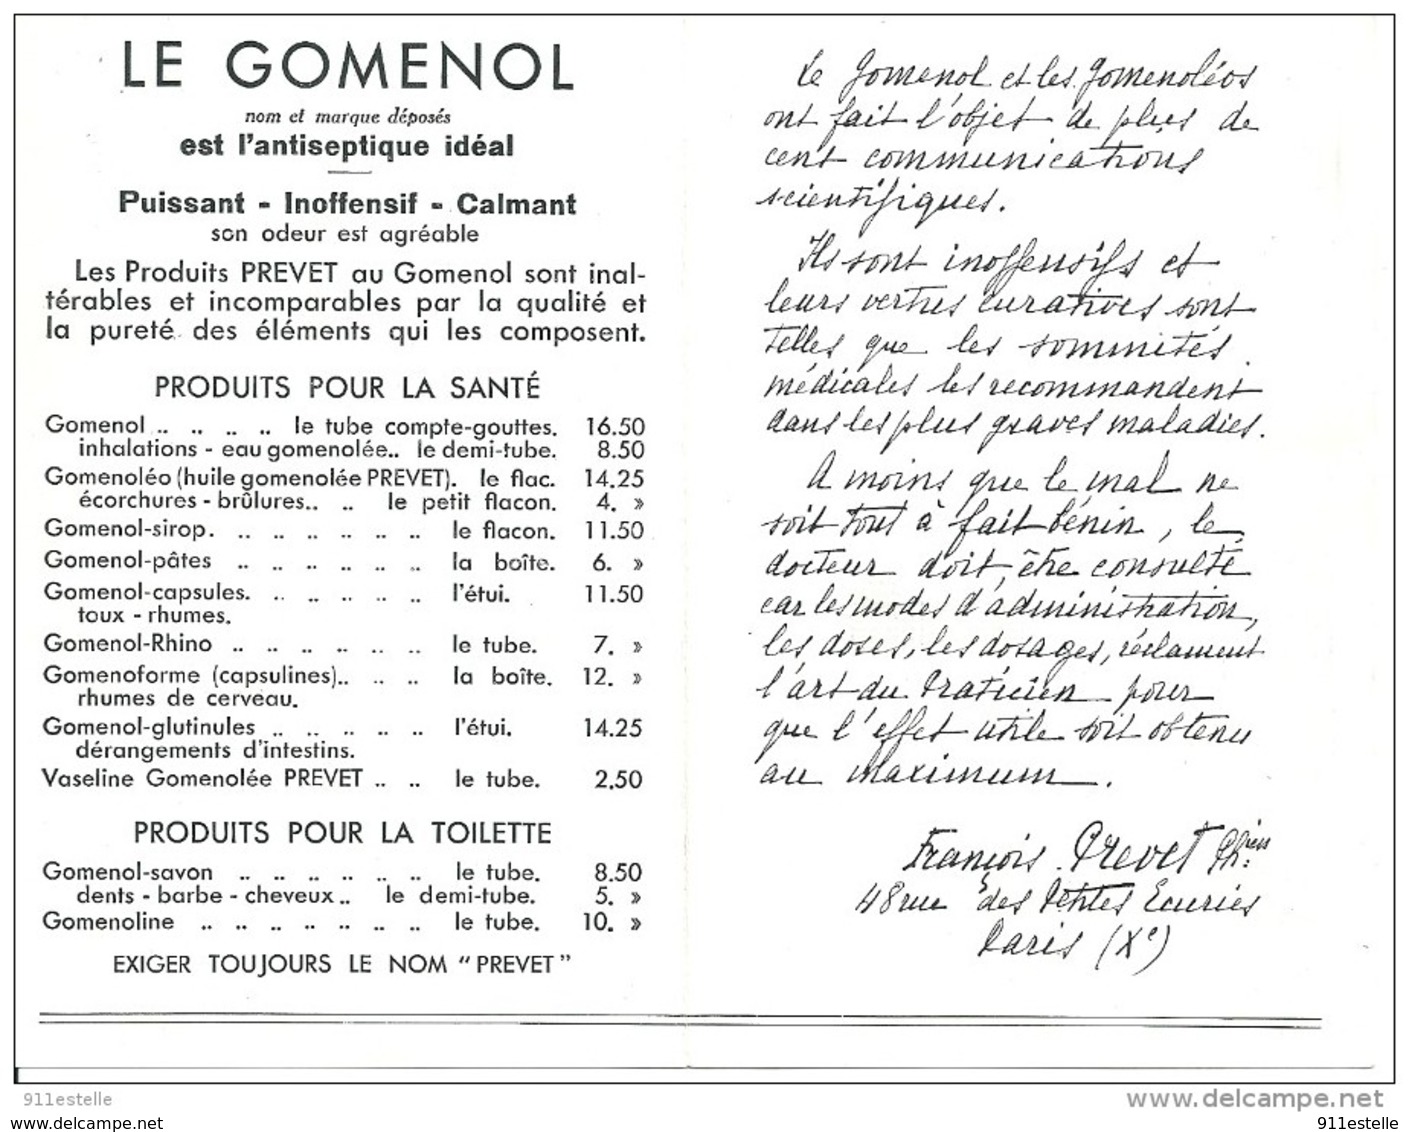 LE GOMENOL
nom et marque déposés
est l'antiseptique idéal
Puissant - Inoffensif - Calmant
son odeur est agréable
Les Produits PREVET au Gomenol sont inal-
térables et incomparables par la qualité et
la pureté des éléments qui les composent.
PRODUITS POUR LA SANTÉ
Gomenol .. .. .. .. le tube compte-gouttes. 16.50
inhalations - eau gomenolée.. le demi-tube. 8.50
Gomenoléo (huile gomenolée PREVET). le flac. 14.25
écorchures - brûlures.. .. le petit flacon. 4. »
Gomenol-sirop. .. .. .. .. .. .. le flacon. 11.50
Gomenol-pâtes .. .. .. .. .. .. la boîte. 6. »
Gomenol-capsules. .. .. .. .. .. l'étui. 11.50
toux - rhumes.
Gomenol-Rhino .. .. .. .. .. .. le tube. 7. »
Gomenoforme (capsulines).. .. .. la boîte. 12. »
rhumes de cerveau.
Gomenol-glutinules .. .. .. .. .. l'étui. 14.25
dérangements d'intestins.
Vaseline Gomenolée PREVET .. .. le tube. 2.50
PRODUITS POUR LA TOILETTE
Gomenol-savon .. .. .. .. .. .. le tube. 8.50
dents - barbe - cheveux .. le demi-tube. 5. »
Gomenoline .. .. .. .. .. .. .. le tube. 10. »
EXIGER TOUJOURS LE NOM "PREVET"
Le Gomenol et les Gomenoléos
ont fait l'objet de plus de
cent communications
scientifiques.
Ils sont inoffensifs et
leurs vertus curatives sont
telles que les sommités
médicales les recommandent
dans les plus graves maladies.
A moins que le mal ne
soit tout à fait bénin, le
docteur doit être consulté
car les modes d'administration,
les doses, les dosages, réclament
l'art du Praticien pour
que l'effet utile soit obtenu
au maximum.
François Prevet Ph:iens
48 rue des Petites Ecuries
Paris (Xe)
911estelle
www.delcampe.net
911estelle
911estelle